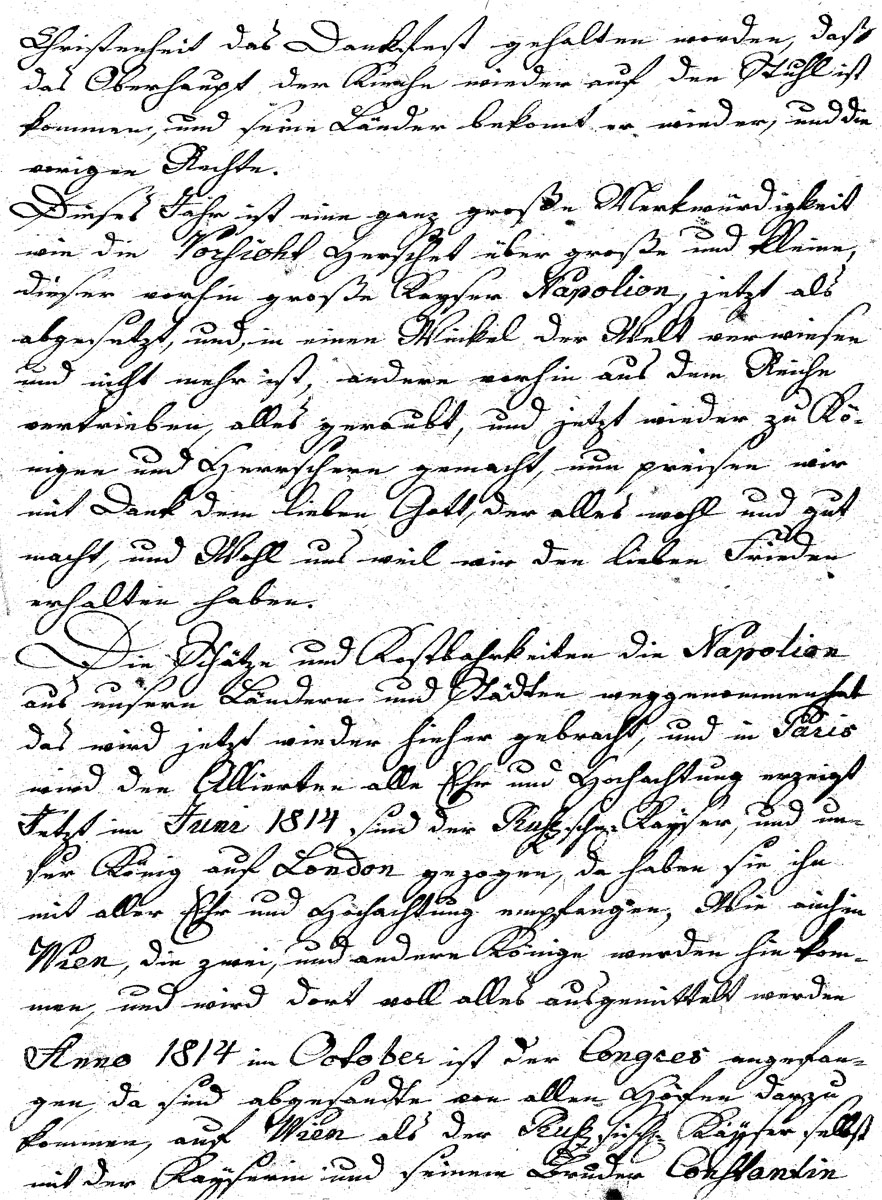 Christenheit das Dankfest gehalten worden, daß
das Oberhaupt der Kirche wieder auf den Stuhl ist
kommen, und seine Länder bekomt er wieder, und die
vorigen Rechte.
Dieses Jahr ist eine ganz große Merkwürdigkeit
wie die Vorsicht Herschet über große und kleine,
dieser vorhin große Keyser Napolion, jetzt als
abgesetzt, und, in einen Winkel der Welt verwiesen
und nicht mehr ist, andere vorhin aus dem Reiche
vertrieben, alles geraubt, und jetzt wieder zu Kö-
nigen und Herrschern gemacht, nun preisen wir
mit Dank dem lieben Gott, der alles wohl und gut
macht, und Wohl uns weil wir den lieben Frieden
erhalten haben.
Die Schätze und Kostbahrkeiten die Napolion
aus unsern Ländern und Städten weggenommen hat
das wird jetzt wieder hieher gebracht, und in Päris
wird den Allierten alle Ehr und Hochachtung erzeigt
Jetzt im Juni 1814 sind der Kayser, und un-
ser König auf London gezogen, da haben sie ihn
mit aller Ehr und Hochachtung empfangen, Wie auch in
Wien, die zwei, und andere Könige werden hin kom-
men, und wird dort voll alles ausgemittelt werden
Anno 1814 im October ist der Congres angefan-
gen, da sind abgesandte von allen Höfen darzu
kommen, auf Wien als der Kayser selbst
mit der Kayserin und seinem Bruder Constantin